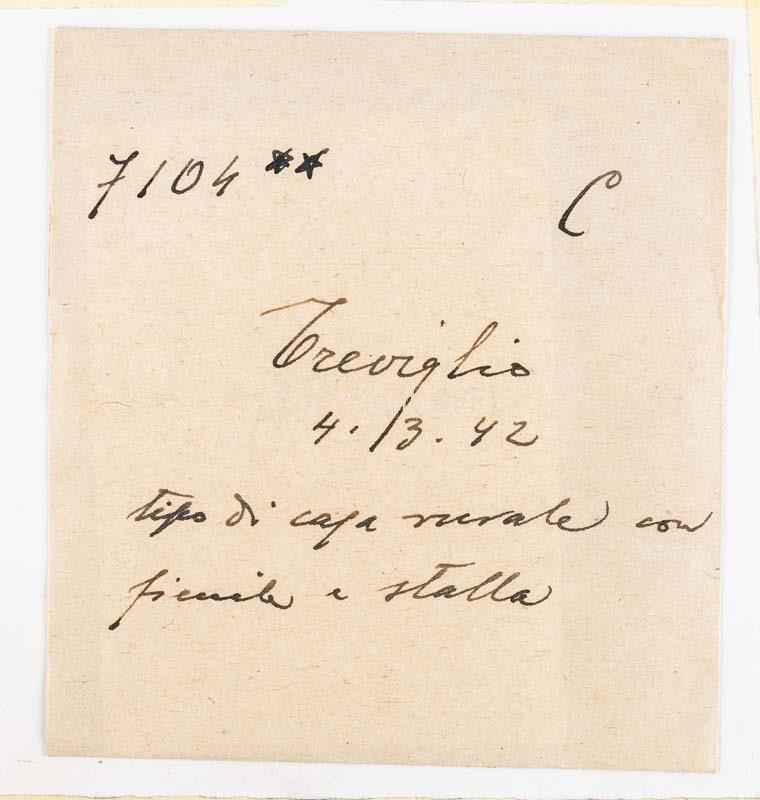 7104 **
C
Treviglio
4. 13. 42
tipo di casa rurale con
fienile e stalla